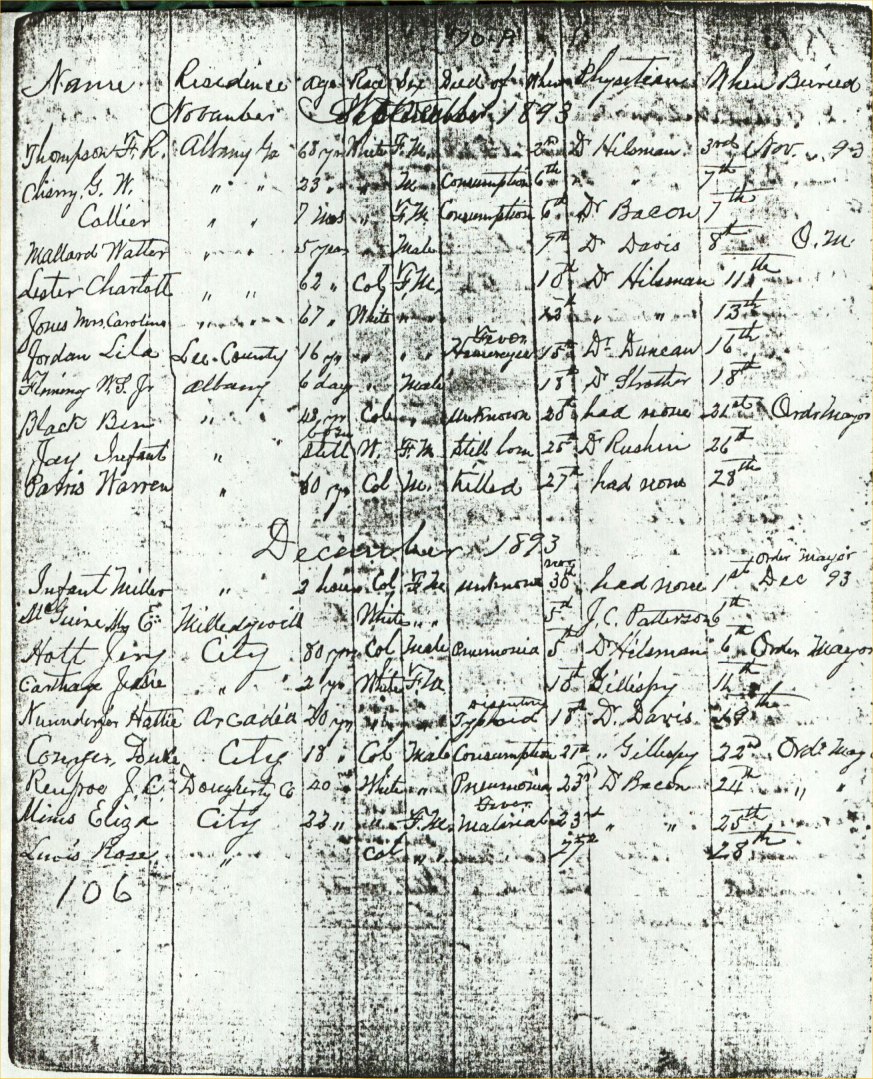 Name Residence Age Race Sex Died of When Physitian When Buried
November 1893
Thompson F. R. Albany Ga 68 yr White F. M. 2nd Dr Hilsman 3rd Nov. 93
Cherry G. W. " " 23 " " M Consumption 6th " " 7th
Collier " " 7 mos " F. M Consumption 6th Dr Bacon 7th
Mallard Walter " " 5 years " Male 7th Dr Davis 8th O. M.
Lester Charlott " " 62 " Col F. M. 10th Dr Hilsman 11th
Jones Mrs. Caroline " " 67 " White " " " " 13th
Jordan Lila Lee County 16 yr " " " Fever 15th Dr Duncan 16th
Flemming W. S. Jr Albany 6 day " Male 18th Dr Strother 18th
Black Ben " 48 yr Col " unknown 20th had none 21st Ord Mayor
Jay Infant " still born W. F. M Still born 25th Dr Rushin 26th
Parris Warren " 60 yr Col M. Killed 27th had none 28th
December 1893
Infant Miller " " 2 hours Col F. M unknown Nov 30th had none 1st Dec 93 Order Mayor
McGuire E. Milledgevill White " " 5th J. C. Patterson 6th
Holt Jiny City 80 yr Col Male Pneumonia 5th Dr Hilsman 6th Order Mayor
Jessie " " 2 yr White F. M 10th Gillispy 11th
Hattie Arcadia 20 yr " " Typhoid 18th Dr. Davis 19th
Conyer, Duke City 18 " Col Male Consumption 21st " Gillespy 22nd Ord. May
Renfroe J. C. Dougherty Co 40 " White " Pneumonia 23rd Dr Bacon 24th " "
Mims Eliza City 22 " " F. M. Malarial Fever 23rd " " 25th
Lewis Rose " Col " " 27th 28th
106